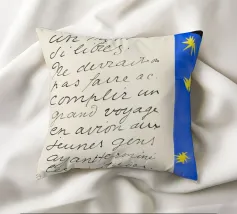 un m
si libres.
Ne devraient
pas faire ac
complir un
grand voyage
en avion aux
jeunes gens
ayant termine